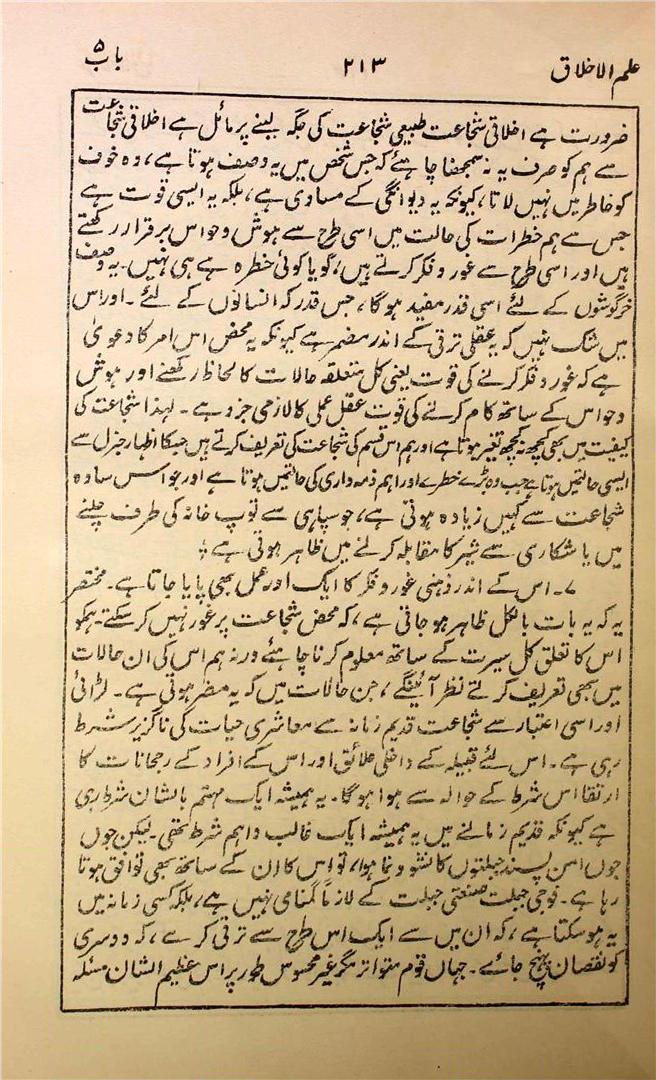 علم الاخلاق ۲۱۳ باب ۵
ضرورت ہے اخلاقی شجاعت طبیعی شجاعت کی جگہ لینے پر مائل ہے اخلاقی شجاعت
سے ہم کو صرف یہ نہ سمجھنا چاہئے کہ جس شخص میں یہ وصف ہوتا ہے، وہ خوف
کو خاطر میں نہیں لاتا، کیونکہ یہ دیوانگی کے مساوی ہے، بلکہ یہ ایسی قوت ہے
جس سے ہم خطرات کی حالت میں اسی طرح سے ہوش و حواس برقرار رکھتے
ہیں اور اسی طرح سے غور و فکر کرتے ہیں، گویا کوئی خطرہ ہے ہی نہیں۔ یہ وصف
خرگوشوں کے لئے اسی قدر مفید ہوگا، جس قدر کہ انسانوں کے لئے۔ اور اس
میں شک نہیں کہ یہ عقلی ترقی کے اندر مضمر ہے کیونکہ یہ محض اس امر کا دعویٰ
ہے کہ غور و فکر کرنے کی قوت یعنی کل متعلقہ حالات کا لحاظ رکھنے اور ہوش
و حواس کے ساتھ کام کرنے کی قوت عقل عملی کا لازمی جزو ہے۔ لہذا شجاعت کی
کیفیت میں بھی کچھ نہ کچھ تغیر ہوتا ہے اور ہم اس قسم کی شجاعت کی تعریف کرتے ہیں جسکا اظہار جنرل سے
ایسی حالتیں ہوتا ہے جب وہ بڑے خطرے اور اہم ذمہ داری کی حالتمیں ہوتا ہے اور جو اس سادہ
شجاعت سے کہیں زیادہ ہوتی ہے، جو سپاہی سے توپ خانہ کی طرف چلنے
میں یا شکاری سے شیر کا مقابلہ کرنے میں ظاہر ہوتی ہے؛
۷۔ اس کے اندر ذہنی غور و فکر کا ایک اور عمل بھی پایا جاتا ہے۔ مختصر
یہ کہ یہ بات بالکل ظاہر ہو جاتی ہے، کہ محض شجاعت پر غور نہیں کر سکتے۔ ہمکو
اس کا تعلق کل سیرت کے ساتھ معلوم کرنا چاہئے ورنہ ہم اس کی ان حالات
میں بھی تعریف کرتے نظر آئینگے، جن حالات میں کہ یہ مضر ہوتی ہے۔ لڑائی
اور اسی اعتبار سے شجاعت قدیم زمانہ سے معاشری حیات کی ناگزیر شرط
رہی ہے۔ اس لئے قبیلہ کے داخلی علائق اور اس کے افراد کے رجحانات کا
ارتقا اس شرط کے حوالہ سے ہوا ہوگا۔ یہ ہمیشہ ایک مہتم بالشان شرط رہی
ہے کیونکہ قدیم زمانے میں یہ ہمیشہ ایک غالب و اہم شرط تھی۔ لیکن جوں
جوں امن پسند جبلتوں کا نشو و نما ہوا، تو اس کا ان کے ساتھ بھی توافق ہوتا
رہا ہے۔ فوجی جبلت صنعتی جبلت کے لازماً منافی نہیں ہے، بلکہ کسی زمانہ میں
یہ ہو سکتا ہے، کہ ان میں سے ایک اس طرح سے ترقی کرے، کہ دوسری
کو نقصان پہنچ جائے۔ جہاں قوم متواتر مگر غیر محسوس طور پر اس عظیم الشان مسئلہ